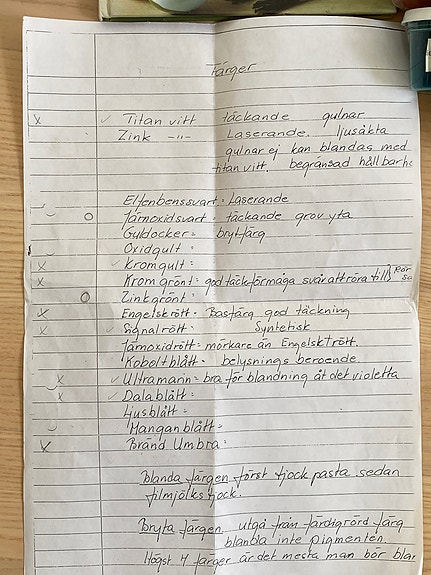 Färger
x ✓ Titan vitt täckande gulnar
Zink -"- Laserande. ljusäkta
gulnar ej kan blandas med
titan vitt. begränsad hållbarhe
Elfenbenssvart: Laserande
o Järnoxidsvart: täckande grov yta
Guldocker: brytfärg
Oxidgult:
x ✓ Kromgult:
x Kromgrönt: god täckförmåga svår att röra till
o Zinkgrönt:
x Engelskrött: Basfärg god täckning
x ✓ Signalrött: Syntetisk
Järnoxidrött: mörkare än Engelsktrött.
Koboltblått: belysnings beroende
x ✓ Ultramarin= bra för blandning åt det violetta
x ✓ Dalablått:
Ljusblått:
Manganblått:
x Bränd Umbra:
Blanda färgen först tjock pasta sedan
filmjölks tjock.
Bryta färgen. utgå från färdigrörd färg
blanda inte pigmenten.
Högst 4 färger är det mesta man bör blan